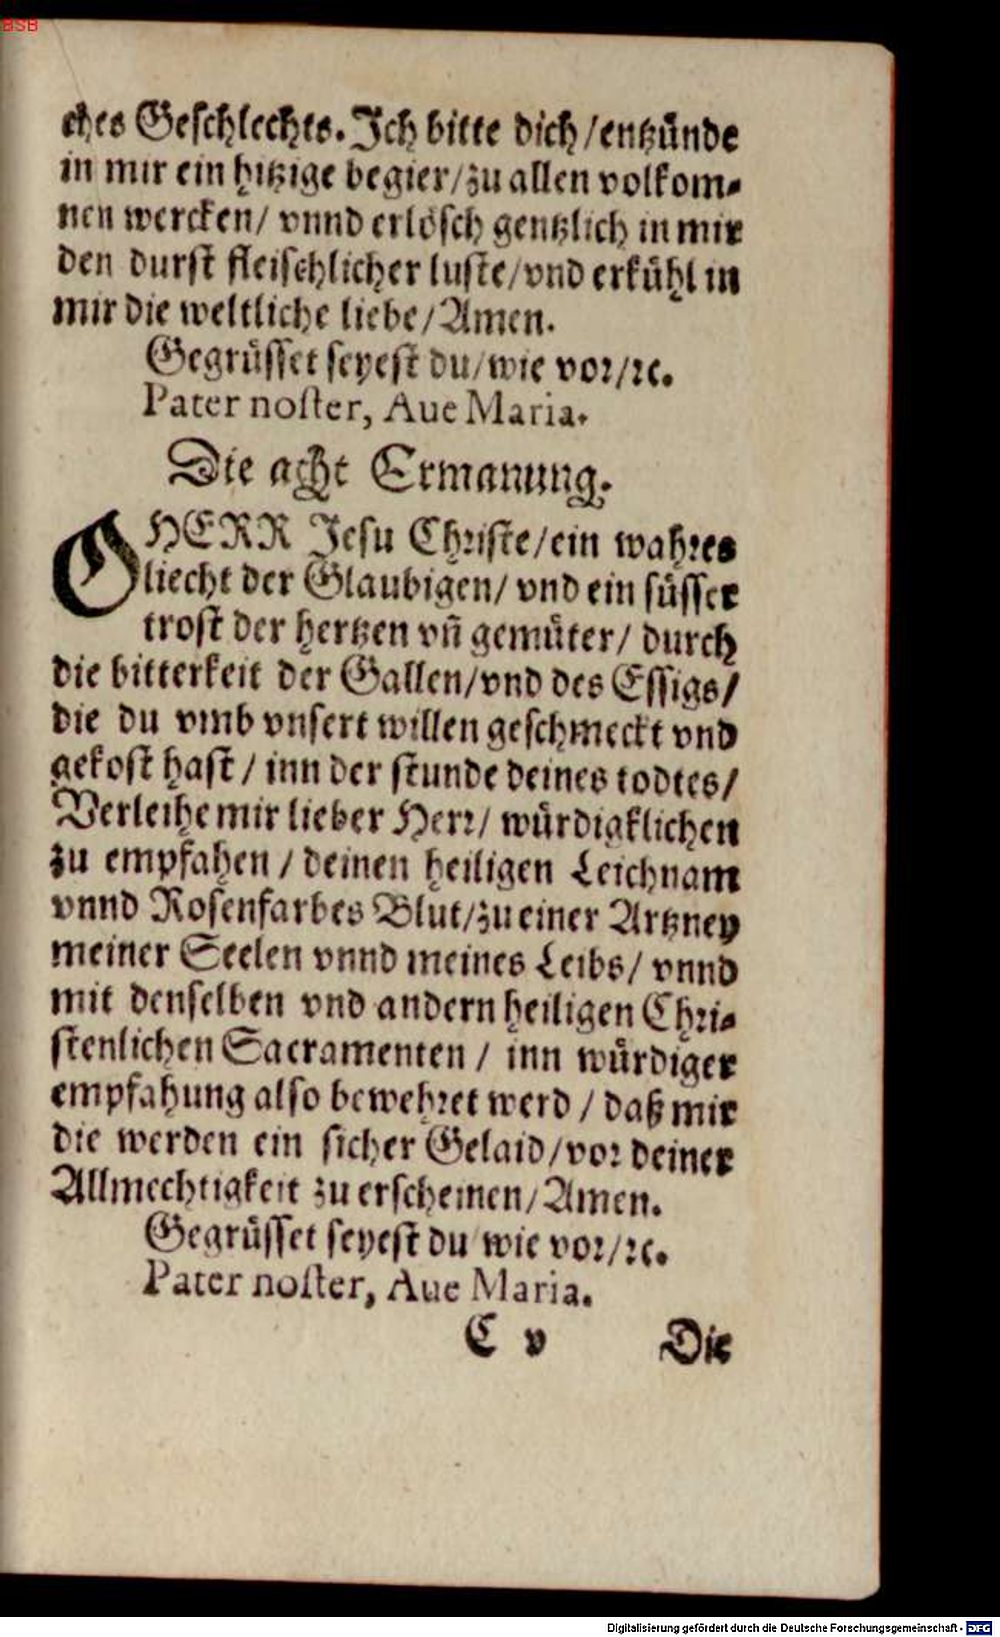 BSB
ches Geschlechts. Ich bitte dich / entzünde
in mir ein hitzige begier / zu allen volkom-
nen wercken / vnnd erlösch gentzlich in mir
den durst fleischlicher luste / vnd erkühl in
mir die weltliche liebe / Amen.
Gegrüsset seyest du / wie vor / ꝛc.
Pater noster, Aue Maria.
Die acht Ermanung.
O HERR Jesu Christe / ein wahres
liecht der Glaubigen / vnd ein süsser
trost der hertzen vñ gemüter / durch
die bitterkeit der Gallen / vnd des Essigs /
die du vmb vnsert willen geschmeckt vnd
gekost hast / inn der stunde deines todtes /
Verleihe mir lieber Herr / würdigklichen
zu empfahen / deinen heiligen Leichnam
vnnd Rosenfarbes Blut / zu einer Artzney
meiner Seelen vnnd meines Leibs / vnnd
mit denselben vnd andern heiligen Chri-
stenlichen Sacramenten / inn würdiger
empfahung also bewehret werd / daß mir
die werden ein sicher Gelaid / vor deiner
Allmechtigkeit zu erscheinen / Amen.
Gegrüsset seyest du wie vor / ꝛc.
Pater noster, Aue Maria.
C v Die
Digitalisierung gefördert durch die Deutsche Forschungsgemeinschaft - DFG